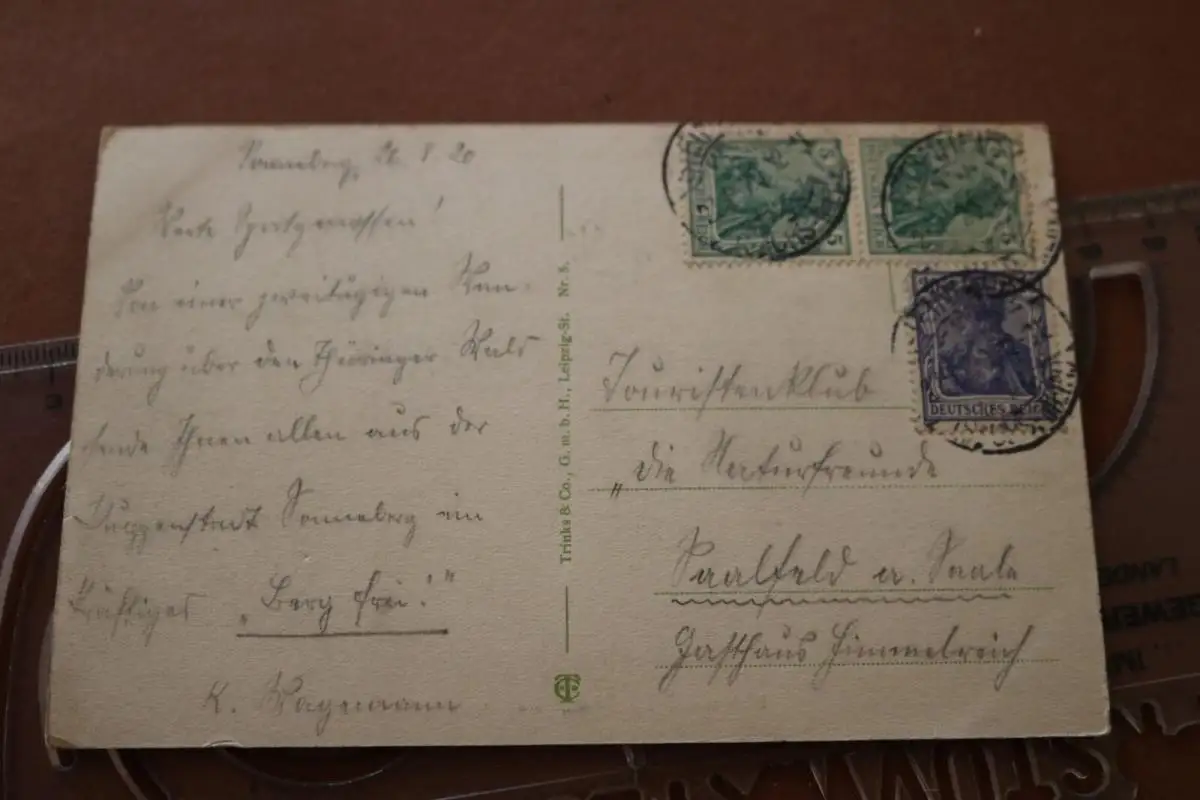 Sonneberg, 26. 8. 20
Werte Sportgenossen!
Von einer zweitägigen Wan-
derung über den Thüringer Wald
sende Ihnen allen aus der
Puppenstadt Sonneberg ein
kräftiges „Berg frei!"
K. Wagemann
Trinks & Co., G. m. b. H., Leipzig-St. Nr. 5.
5
DEUTSCHES REICH
Touristenklub
„die Naturfreunde
Saalfeld a. Saale
Gasthaus Himmelreich
LANDE